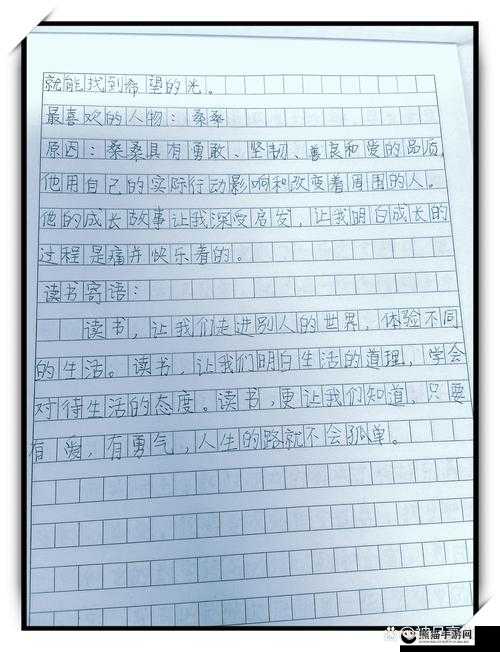 就能找到希望的光。
最喜欢的人物：桑桑
原因：桑桑具有勇敢、坚韧、善良和爱的品质，
他用自己的实际行动影响和改变着周围的人。
他的成长故事让我深受启发，让我明白成长的
过程是痛并快乐着的。
读书寄语：
读书，让我们走进别人的世界，体验不同
的生活。读书，让我们明白生活的道理，学会
对待生活的态度。读书，更让我们知道，只要
有爱，有勇气，人生的路就不会孤单。
熊猫手游网